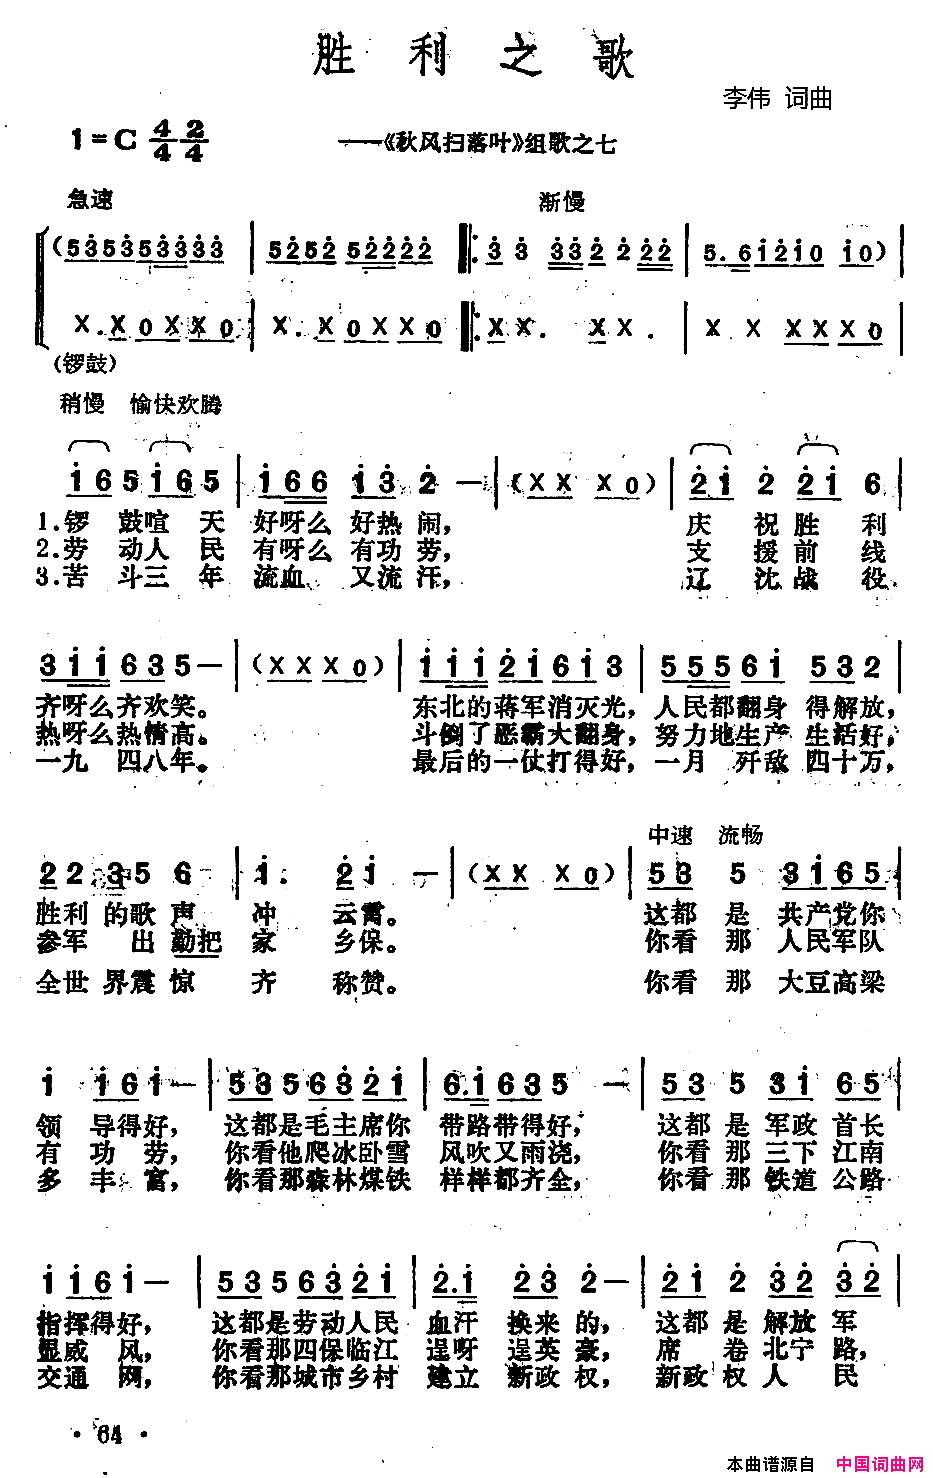 胜利之歌
李伟 词曲
1=C 4/4 2/4
——《秋风扫落叶》组歌之七
急速 渐慢
(535353533333 | 5252 52222 |: 33 332 222 | 5.61210 10)
X.X0XX0 | X.X0XX0 |: XX. XX. | X X XXX0
(锣鼓)
稍慢 愉快欢腾
165165 | 166 13 2 — | (XX X0) | 21 2 21 6
1.锣鼓喧天 好呀么好热闹, 庆祝胜利
2.劳动人民 有呀么有功劳, 支援前线
3.苦斗三年 流血又流汗, 辽沈战役
311635— | (XXX0) | 11121613 | 55561 532
齐呀么齐欢笑。 东北的蒋军消灭光, 人民都翻身得解放,
热呀么热情高。 斗倒了恶霸大翻身, 努力地生产生活好,
一九四八年。 最后的一仗打得好, 一月歼敌四十万,
中速 流畅
22356 | 1. 21— | (XX X0) | 53 5 3165
胜利的歌声冲云霄。 这都是共产党你
参军出勤把家乡保。 你看那人民军队
全世界震惊齐称赞。 你看那大豆高粱
1 161— | 53566321 | 6.1635— | 53 5 31 65
领导得好, 这都是毛主席你带路带得好, 这都是军政首长
有功劳, 你看他爬冰卧雪风吹又雨浇, 你看那三下江南
多丰富, 你看那森林煤铁样样都齐全, 你看那铁道公路
1161— | 53566321 | 2.1 23 2— | 21 2 32 32
指挥得好, 这都是劳动人民血汗换来的, 这都是解放军
显威风, 你看那四保临江逞呀逞英豪, 席卷北宁路,
交通网, 你看那城市乡村建立新政权, 新政权人民
· 64 ·
本曲谱源自 中国词曲网